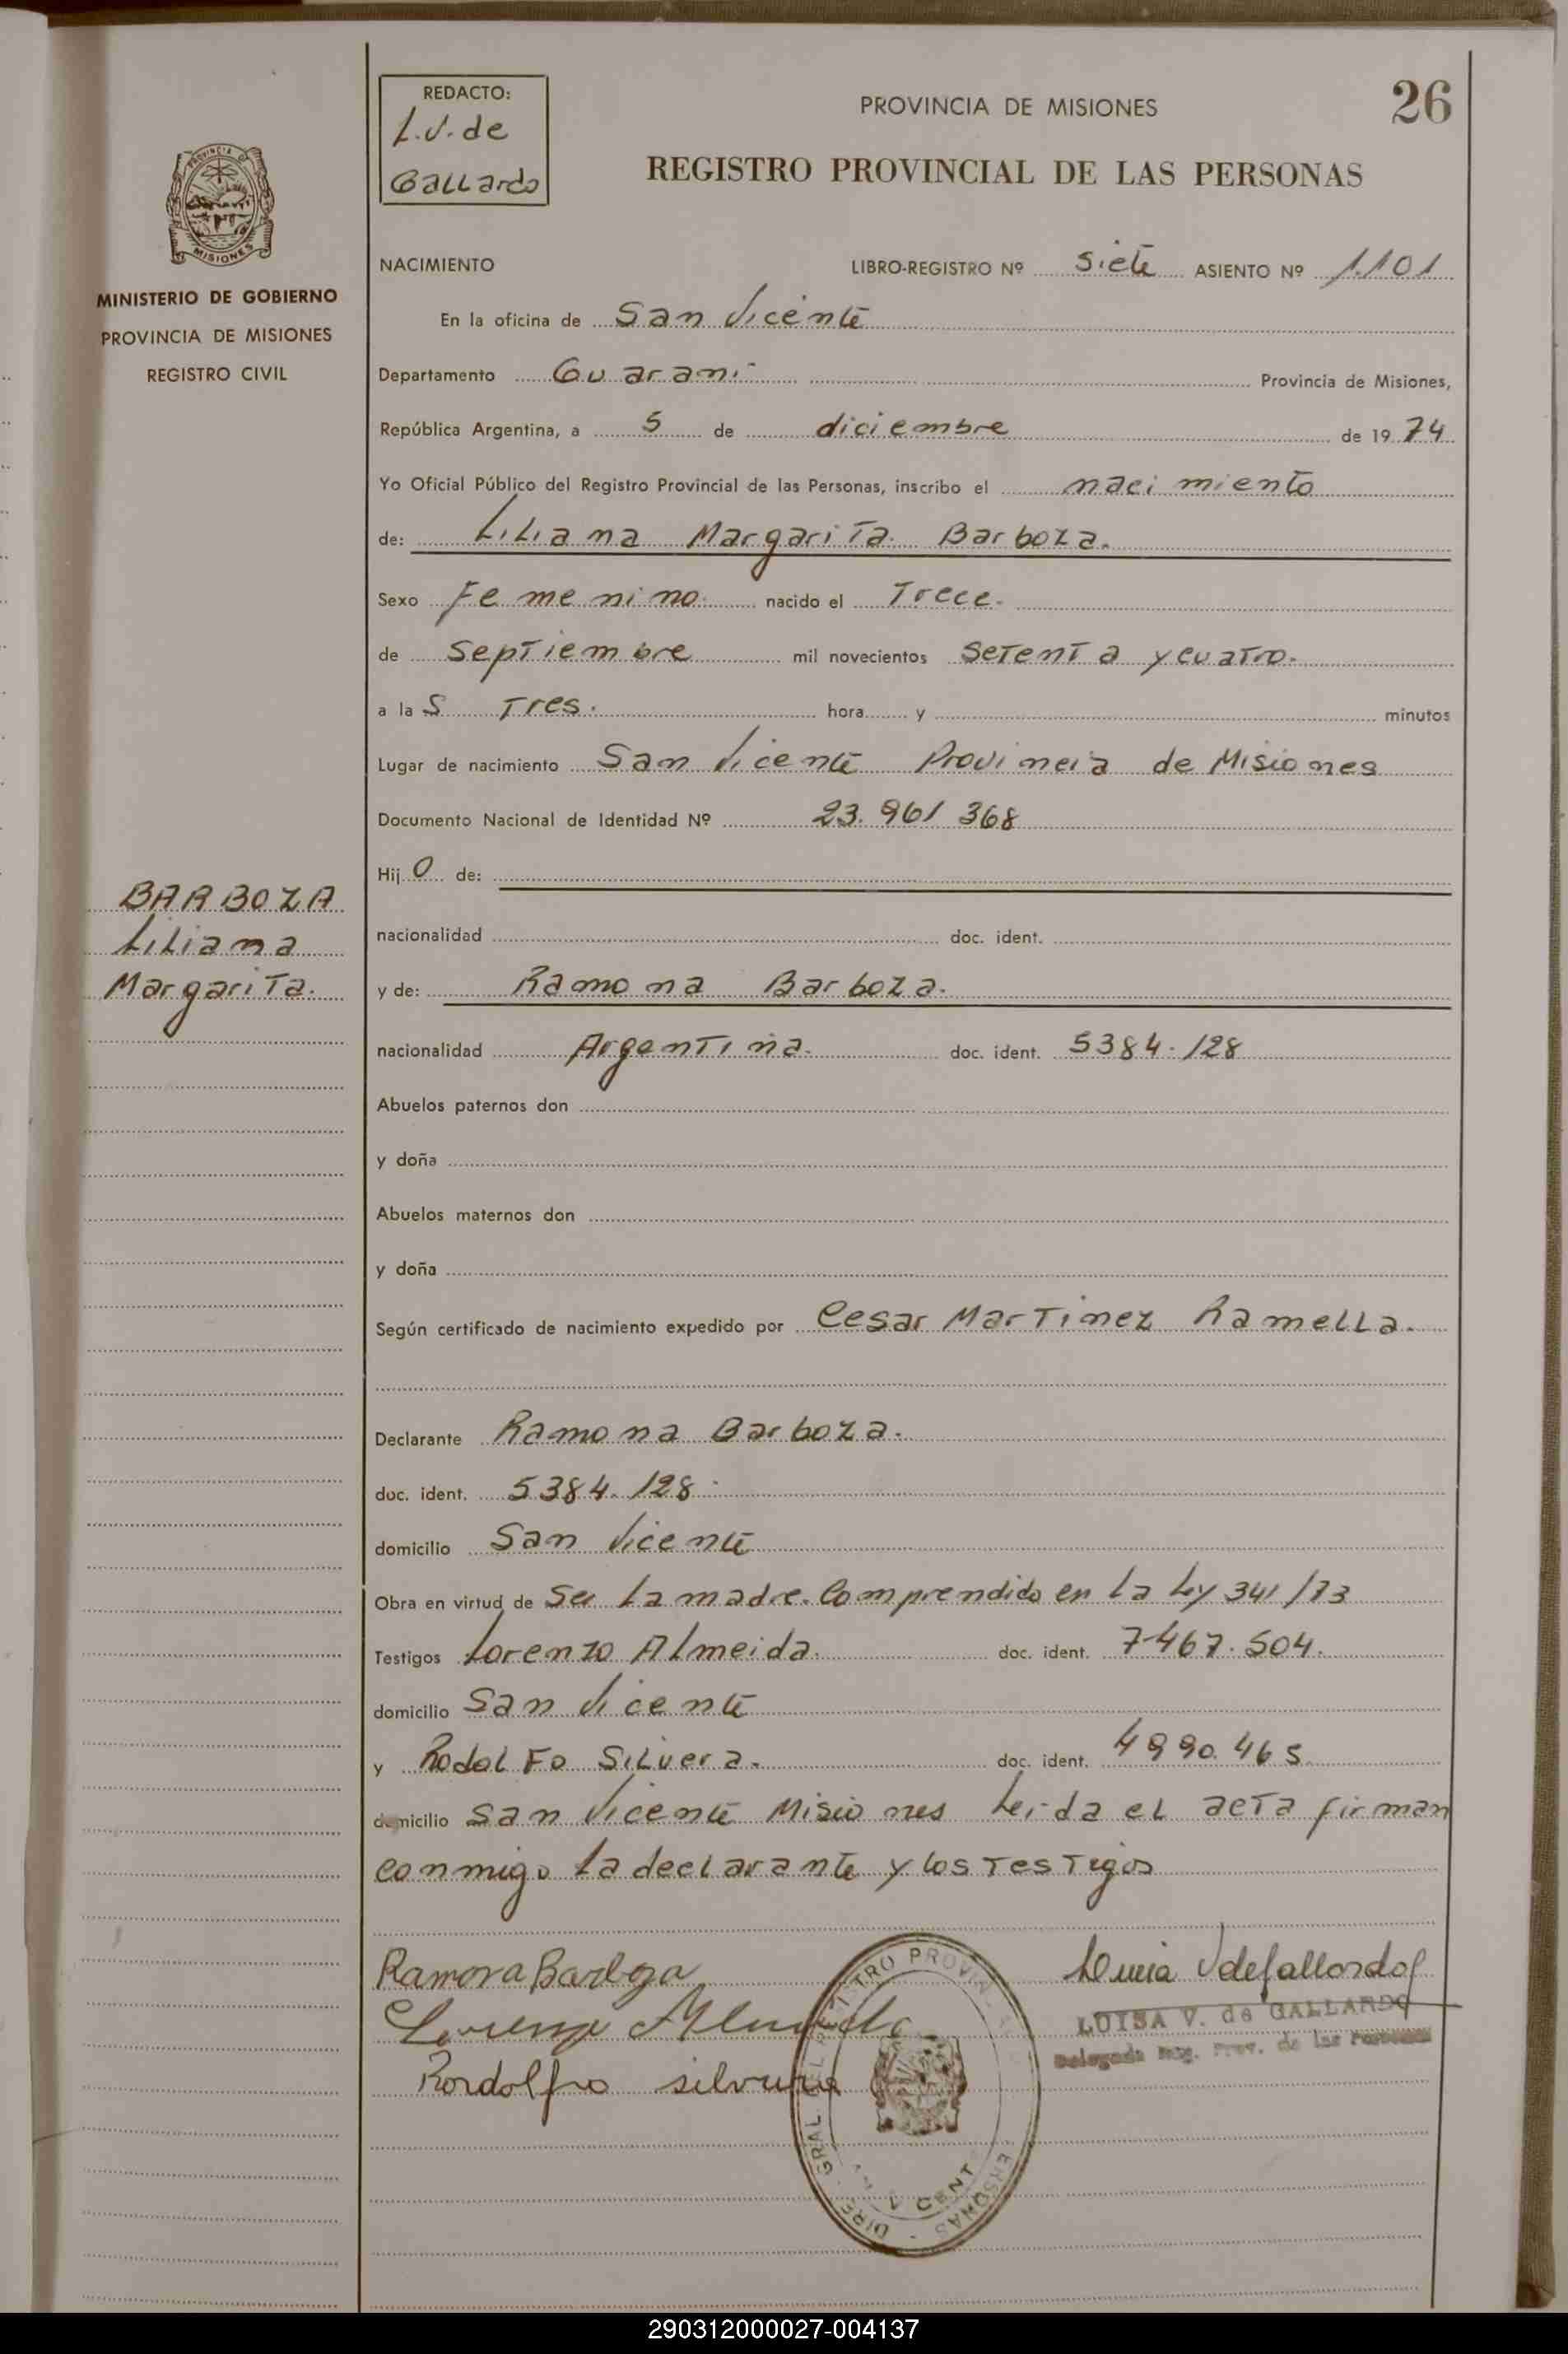 26
REDACTO:
L.V. de
Gallardo
PROVINCIA DE MISIONES
REGISTRO PROVINCIAL DE LAS PERSONAS
PROVINCIA DE
MISIONES
MINISTERIO DE GOBIERNO
PROVINCIA DE MISIONES
REGISTRO CIVIL
NACIMIENTO LIBRO-REGISTRO Nº siete ASIENTO Nº 1.101
En la oficina de San Vicente
Departamento Guaraní Provincia de Misiones,
República Argentina, a 5 de diciembre de 1974
Yo Oficial Público del Registro Provincial de las Personas, inscribo el nacimiento
de: Liliana Margarita Barboza.
Sexo Femenino nacido el Trece.
de Septiembre mil novecientos Setenta y cuatro.
a las Tres. hora y minutos
Lugar de nacimiento San Vicente Provincia de Misiones
Documento Nacional de Identidad Nº 23.961 368
Hijo de:
BARBOZA
Liliana
Margarita.
nacionalidad doc. ident.
y de: Ramona Barboza.
nacionalidad Argentina. doc. ident. 5384.128
Abuelos paternos don
y doña
Abuelos maternos don
y doña
Según certificado de nacimiento expedido por Cesar Martinez Ramella.
Declarante Ramona Barboza.
doc. ident. 5384.128
domicilio San Vicente
Obra en virtud de Ser la madre. Comprendido en la Ley 341/73
Testigos Lorenzo Almeida. doc. ident. 7467.504.
domicilio San Vicente
y Rodolfo Silvera. doc. ident. 4990.465
domicilio San Vicente Misiones Leida el acta firman
conmigo la declarante y los Testigos
Ramona Barboza
Lorenzo Almeida
Rordolfo silvera
LUISA V. de GALLARDO
Delegada Reg. Prov. de las Personas
290312000027-004137